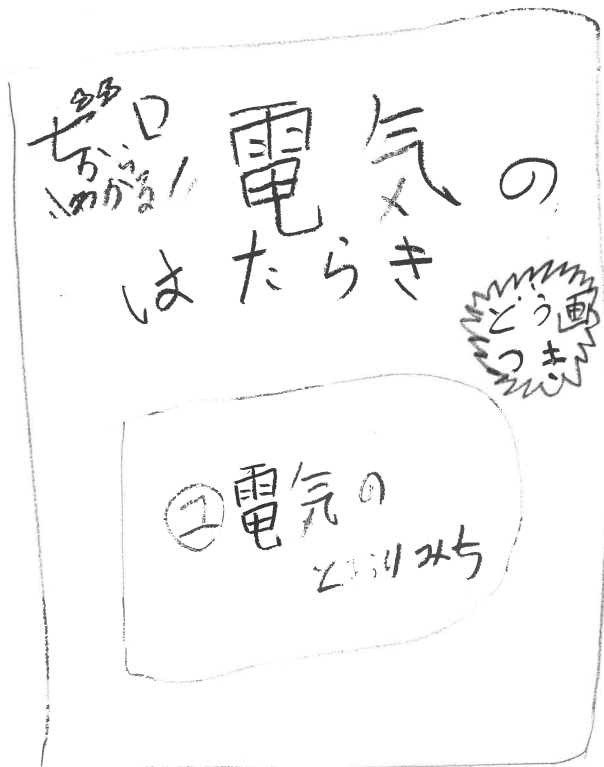 ゼロ
から
わかる!
電気の
はたらき
どう画
つき
①電気の
とおりみち